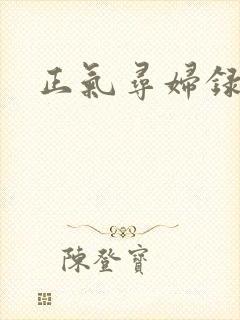 正氣尋婦録
陳登寶